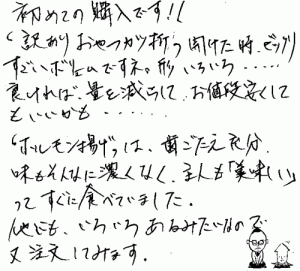 初めての購入です!!
“訳ありおやつがり折り”開けた時、ビックリ
すごいボリュームですネ。形いろいろ.....
良しければ、量を減らして、お値段安くして
もいいかも.......
“ホルモン揚げ”は、歯ごたえ充分
味もそんなに濃くなく、主人も「美味しい」
ってすぐに食べていました。
他にも、いろいろあるみたいなので
又注文してみます。